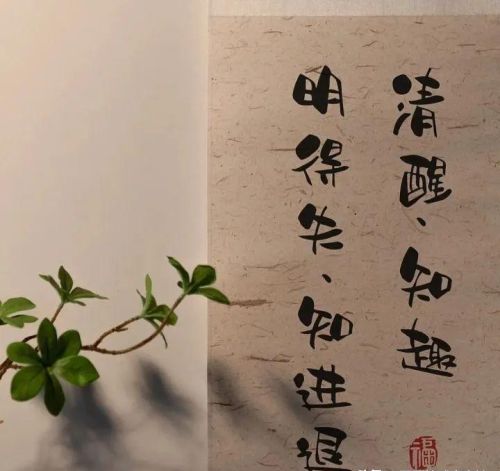 清醒、知趣
明得失、知进退
福